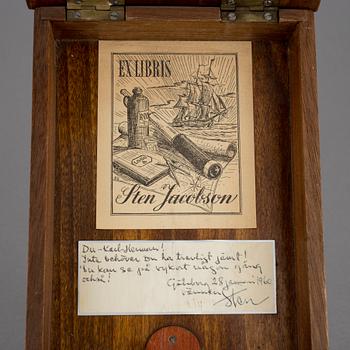 EX LIBRIS
Sten Jacobson
Du - Karl-Herman!
Inte behöver du ha trevligt jämt!
Du kan se på vykort någon gång
också!
Göteborg 28 januari 1966
Sten